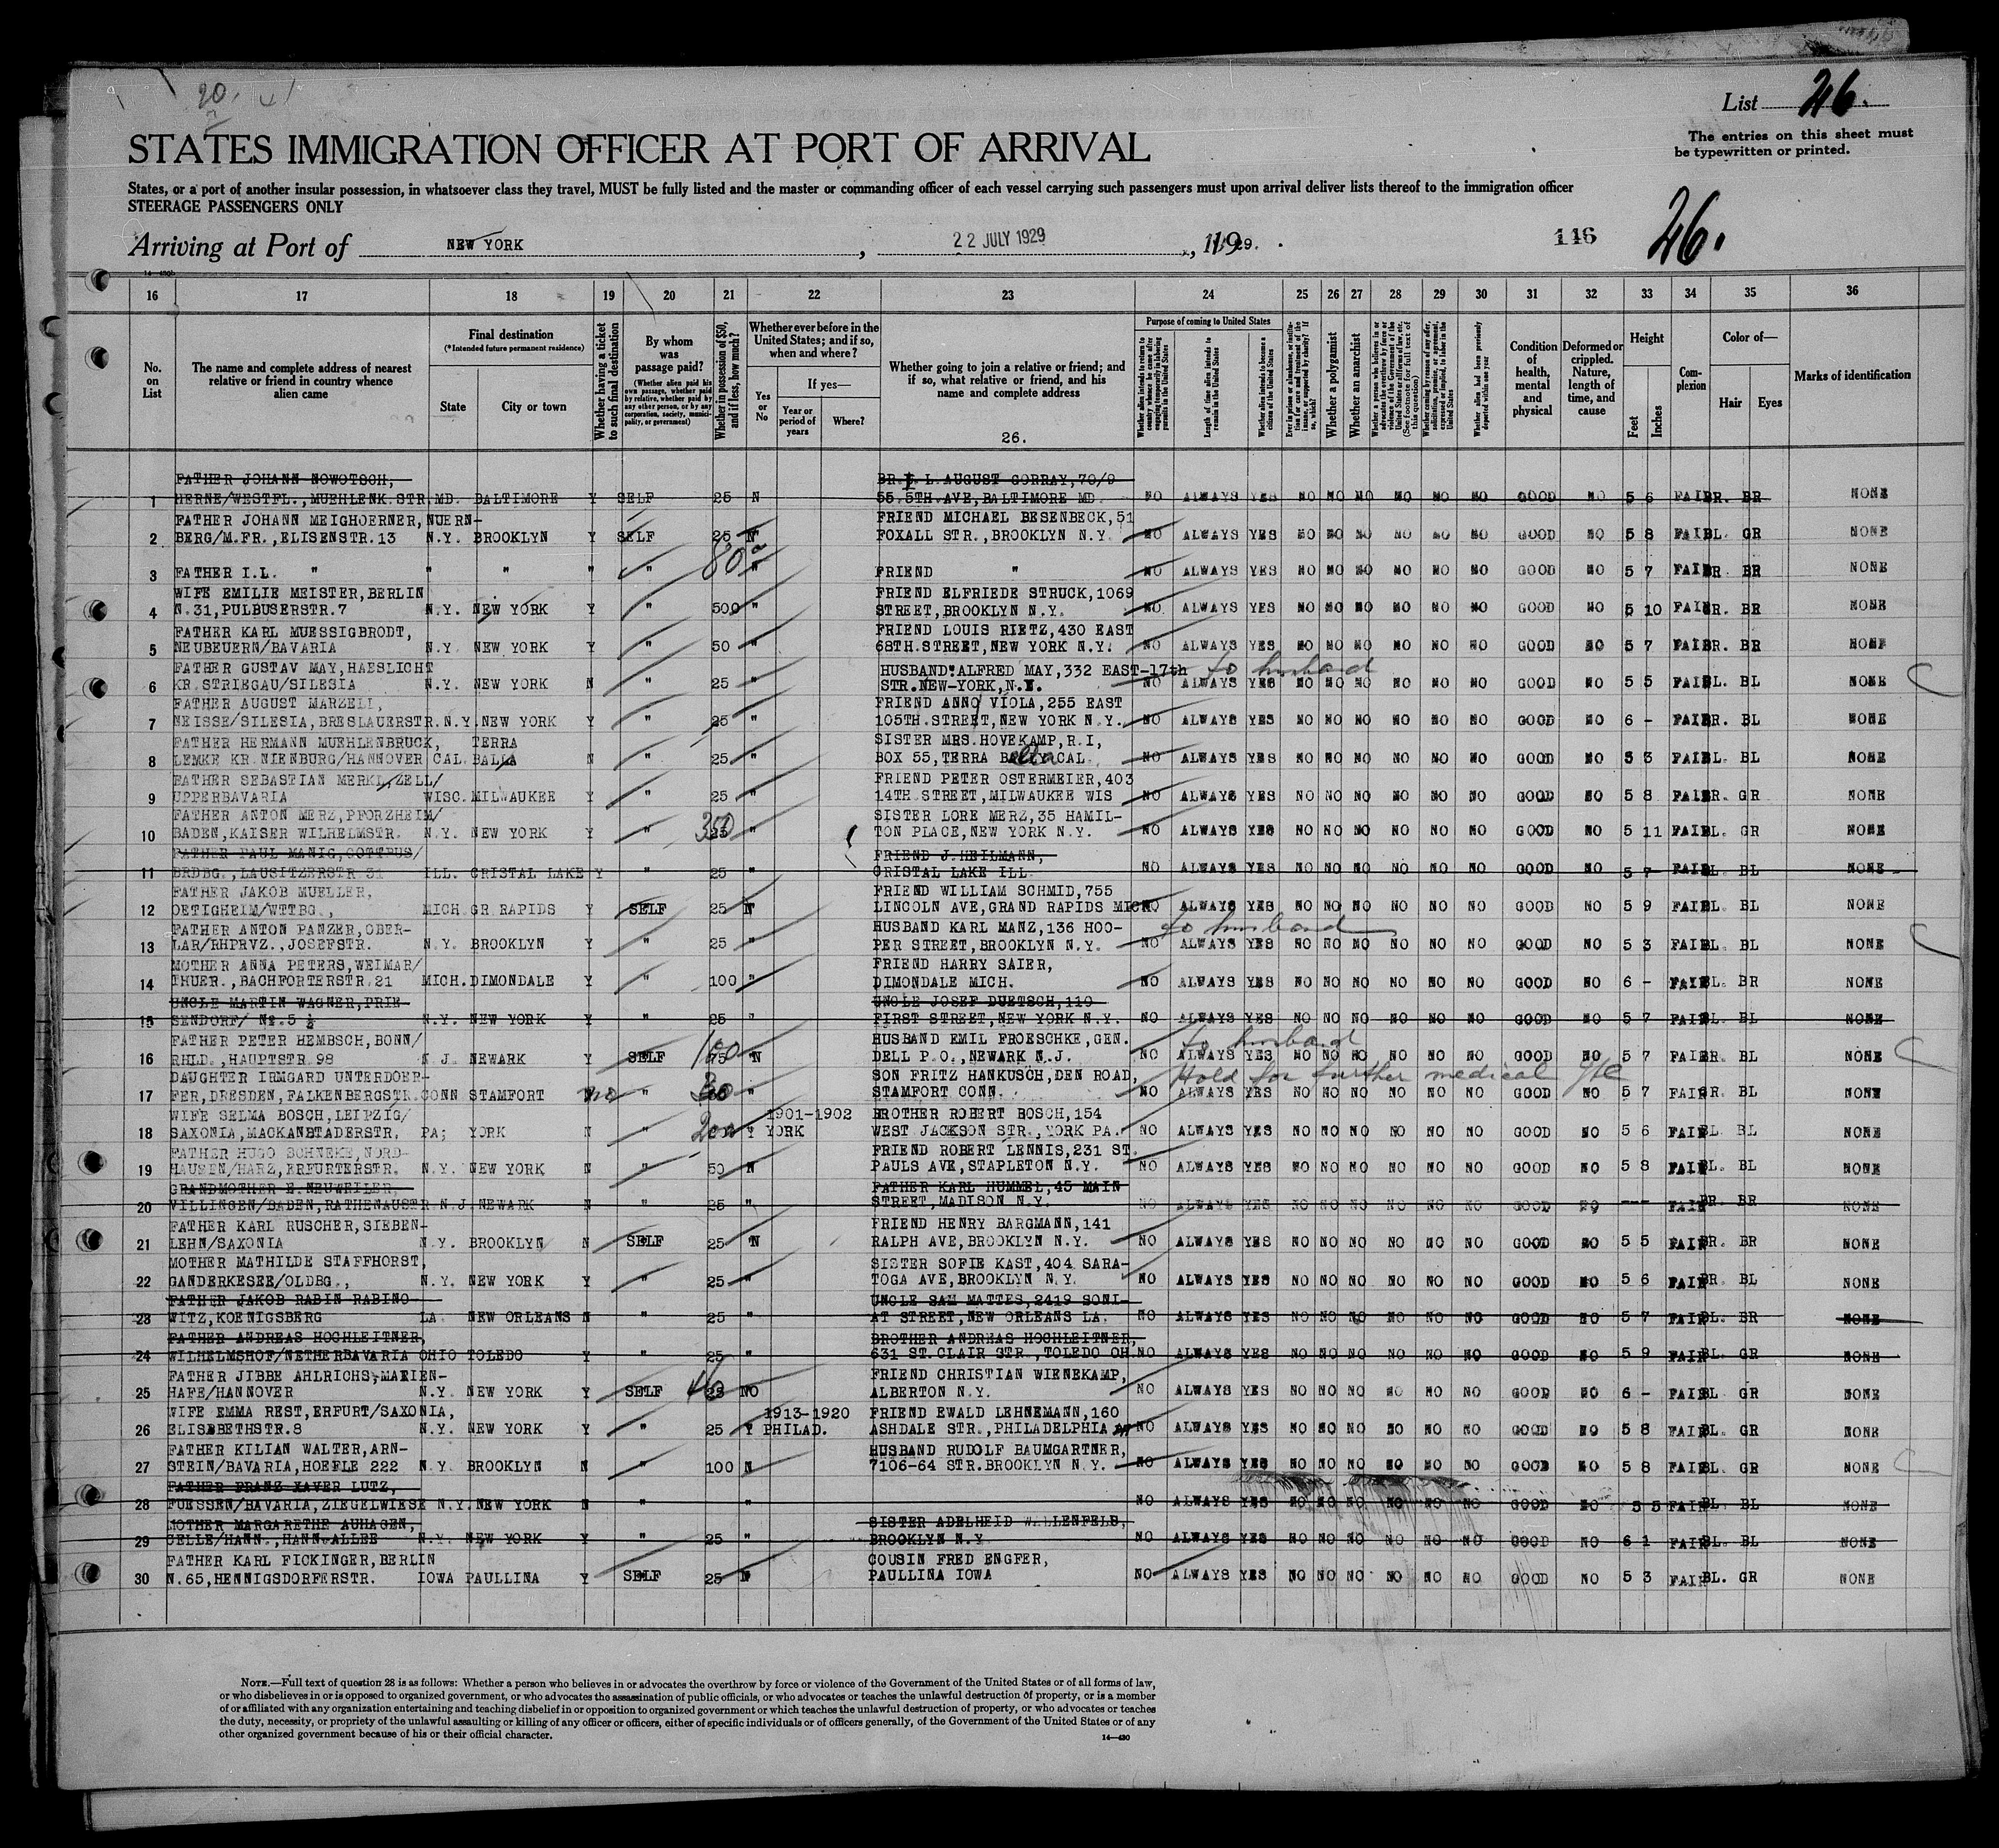 20.
List 26.
The entries on this sheet must
be typewritten or printed.
STATES IMMIGRATION OFFICER AT PORT OF ARRIVAL
States, or a port of another insular possession, in whatsoever class they travel, MUST be fully listed and the master or commanding officer of each vessel carrying such passengers must upon arrival deliver lists thereof to the immigration officer
STEERAGE PASSENGERS ONLY
Arriving at Port of NEW YORK, 22 JULY 1929, 1929.
146 26.
16 17 18 19 20 21 22 23 24 25 26 27 28 29 30 31 32 33 34 35 36
No. on List
The name and complete address of nearest relative or friend in country whence alien came
Final destination
(*Intended future permanent residence)
State City or town
Whether having a ticket to such final destination
By whom was passage paid?
(Whether alien paid his own passage, whether paid by relative, whether paid by any other person, or by any corporation, society, municipality, or government)
Whether in possession of $50, and if less, how much?
Whether ever before in the United States; and if so, when and where?
Yes or No
If yes—
Year or period of years Where?
Whether going to join a relative or friend; and if so, what relative or friend, and his name and complete address
26.
Purpose of coming to United States
Length of time alien intends to remain in the United States
Whether alien intends to become a citizen of the United States
Whether a polygamist
Whether an anarchist
Condition of health, mental and physical
Deformed or crippled. Nature, length of time, and cause
Height
Feet Inches
Complexion
Color of—
Hair Eyes
Marks of identification
FATHER JOHANN NOWOTSCH, BR.I.L.AUGUST GORRAY,70/9
1 HERNE/WESTFL.,MUEHLENK.STR MD. BALTIMORE Y SELF 25 N 55.5TH.AVE,BALTIMORE MD. NO ALWAYS YES NO NO NO NO NO NO GOOD NO 5 6 FAIR BR. BR NONE
FATHER JOHANN MEIGHOERNER,NUERN- FRIEND MICHAEL BESENBECK,51
2 BERG/M.FR.,ELISENSTR.13 N.Y. BROOKLYN Y SELF 25 N FOXALL STR.,BROOKLYN N.Y. NO ALWAYS YES NO NO NO NO NO NO GOOD NO 5 8 FAIR BL. GR NONE
3 FATHER I.L. " " " " " 80 " FRIEND " NO ALWAYS YES NO NO NO NO NO NO GOOD NO 5 7 FAIR BR. BR NONE
WIFE EMILIE MEISTER,BERLIN FRIEND ELFRIEDE STRUCK,1069
4 N.31,PULBUSERSTR.7 N.Y. NEW YORK Y " 500 " STREET,BROOKLYN N.Y. NO ALWAYS YES NO NO NO NO NO NO GOOD NO 5 10 FAIR GR. BR NONE
FATHER KARL MUESSIGBRODT, FRIEND LOUIS RIETZ,430 EAST
5 NEUBEUERN/BAVARIA N.Y. NEW YORK Y " 50 " 68TH.STREET,NEW YORK N.Y. NO ALWAYS YES NO NO NO NO NO NO GOOD NO 5 7 FAIR BR. BR NONE
FATHER GUSTAV MAY,HAESLICHT HUSBAND:ALFRED MAY,332 EAST-17th to husband
6 KR.STRIEGAU/SILESIA N.Y. NEW YORK N " 25 " STR.NEW-YORK,N.Y. NO ALWAYS YES NO NO NO NO NO NO GOOD NO 5 5 FAIR BL. BL NONE
FATHER AUGUST MARZELL, FRIEND ANNO VIOLA,255 EAST
7 NEISSE/SILESIA,BRESLAUERSTR. N.Y. NEW YORK Y " 25 " 105TH.STREET,NEW YORK N.Y. NO ALWAYS YES NO NO NO NO NO NO GOOD NO 6 - FAIR BR. BL NONE
FATHER HERMANN MUEHLENBRUCK, TERRA SISTER MRS.HOVEKAMP,R.I,
8 LEMKE KR.NIENBURG/HANNOVER CAL. BALLA N " 25 " BOX 55,TERRA BELLA CAL. NO ALWAYS YES NO NO NO NO NO NO GOOD NO 5 3 FAIR BL. BL NONE
FATHER SEBASTIAN MERKL,ZELL/ FRIEND PETER OSTERMEIER,403
9 UPPERBAVARIA WISC. MILWAUKEE Y " 25 " 14TH.STREET,MILWAUKEE WIS NO ALWAYS YES NO NO NO NO NO NO GOOD NO 5 8 FAIR BR. GR NONE
FATHER ANTON MERZ,PFORZHEIM/ SISTER LORE MERZ,35 HAMIL-
10 BADEN,KAISER WILHELMSTR. N.Y. NEW YORK Y " 350 " TON PLACE,NEW YORK N.Y. NO ALWAYS YES NO NO NO NO NO NO GOOD NO 5 11 FAIR BL. GR NONE
FATHER PAUL MANIG,COTTPUS/ FRIEND J.HEILMANN,
11 BRDBG.,LAUSITZERSTR 31 ILL. CRISTAL LAKE Y " 25 " CRISTAL LAKE ILL NO ALWAYS YES NO NO NO NO NO NO GOOD NO 5 7 FAIR BL. BL NONE
FATHER JAKOB MUELLER, FRIEND WILLIAM SCHMID,755
12 OETIGHEIM/WTTBG., MICH. GR.RAPIDS Y SELF 25 N LINCOLN AVE,GRAND RAPIDS MICH NO ALWAYS YES NO NO NO NO NO NO GOOD NO 5 9 FAIR BL. BL NONE
FATHER ANTON PANZER,OBER- HUSBAND KARL MANZ,136 HOO- to husband
13 LAR/RHPRVZ.,JOSEFSTR. N.Y. BROOKLYN Y " 25 " PER STREET,BROOKLYN N.Y. NO ALWAYS YES NO NO NO NO NO NO GOOD NO 5 3 FAIR BL. BL NONE
MOTHER ANNA PETERS,WEIMAR/ FRIEND HARRY SAIER,
14 THUER.,BACHFORTERSTR.21 MICH. DIMONDALE Y " 100 " DIMONDALE MICH. NO ALWAYS YES NO NO NO NO NO NO GOOD NO 6 - FAIR BL. BR NONE
UNCLE MARTIN WAGNER,PRIE- UNCLE JOSEF DUETSCH,110
15 SENDORF/ Nr.5 ½ N.Y. NEW YORK Y " 25 " FIRST STREET,NEW YORK N.Y. NO ALWAYS YES NO NO NO NO NO NO GOOD NO 5 7 FAIR BL. BL NONE
FATHER PETER HEMBSCH,BONN/ HUSBAND EMIL FROESCHKE,GEN. to husband
16 RHLD.,HAUPTSTR.98 N.J. NEWARK Y SELF 75 100 N DELL P.O.,NEWARK N.J. NO ALWAYS YES NO NO NO NO NO NO GOOD NO 5 7 FAIR BR. BL NONE
DAUGHTER IRMGARD UNTERDOER- SON FRITZ HANKUSCH,DEN ROAD, Hold for further medical
17 FER,DRESDEN,FALKENBERGSTR. CONN STAMFORT no " 30 " STAMFORT CONN. NO ALWAYS YES NO NO NO NO NO NO GOOD NO 5 7 FAIR GR. BR NONE
WIFE SELMA BOSCH,LEIPZIG/ 1901-1902 BROTHER ROBERT BOSCH,154
18 SAXONIA,MACKANSTADERSTR. PA; YORK N " 200 Y YORK WEST JACKSON STR.,YORK PA. NO ALWAYS YES NO NO NO NO NO NO GOOD NO 5 6 FAIR BL. BL NONE
FATHER HUGO SCHNEKE,NORD- FRIEND ROBERT LENNIS,231 ST.
19 HAUSEN/HARZ,ERFURTERSTR. N.Y. NEW YORK N " 50 N PAULS AVE,STAPLETON N.Y. NO ALWAYS YES NO NO NO NO NO NO GOOD NO 5 8 FAIR BL. BL NONE
GRANDMOTHER E.NEUWEILER, FATHER KARL HUMMEL,45 MAIN
20 VILLINGEN/BADEN,RATHENAUSTR N.J. NEWARK N 25 STREET,MADISON N.Y. NO ALWAYS YES NO NO NO NO NO NO GOOD NO --- FAIR BR. BR NONE
FATHER KARL RUSCHER,SIEBEN- FRIEND HENRY BARGMANN,141
21 LEHN/SAXONIA N.Y. BROOKLYN N SELF 25 N RALPH AVE,BROOKLYN N.Y. NO ALWAYS YES NO NO NO NO NO NO GOOD NO 5 5 FAIR BR. BR NONE
MOTHER MATHILDE STAFFHORST, SISTER SOFIE KAST,404 SARA-
22 GANDERKESEE/OLDBG., N.Y. NEW YORK Y " 25 " TOGA AVE,BROOKLYN N.Y. NO ALWAYS YES NO NO NO NO NO NO GOOD NO 5 6 FAIR BR. BL NONE
FATHER JAKOB RABIN RABINO- UNCLE SAM MATTES,2419 SONI-
23 WITZ,KOENIGSBERG LA. NEW ORLEANS N " 25 " AT STREET,NEW ORLEANS LA. NO ALWAYS YES NO NO NO NO NO NO GOOD NO 5 7 FAIR BL. BR NONE
FATHER ANDREAS HOCHLEITNER, BROTHER ANDREAS HOCHLEITNER,
24 WILHELMSHOF/NETHERBAVARIA OHIO TOLEDO Y " 25 " 631 ST.CLAIR STR.,TOLEDO OH. NO ALWAYS YES NO NO NO NO NO NO GOOD NO 5 9 FAIR BL. GR NONE
FATHER JIBBE AHLRICHS,MARIEN- FRIEND CHRISTIAN WIENEKAMP,
25 HAFE/HANNOVER N.Y. NEW YORK Y SELF 40 NO ALBERTON N.Y. NO ALWAYS YES NO NO NO NO NO NO GOOD NO 6 - FAIR BL GR NONE
WIFE EMMA REST,ERFURT/SAXONIA, 1913-1920 FRIEND EWALD LEHNEMANN,160
26 ELISEBETHSTR.8 N.Y. NEW YORK Y " 25 Y PHILAD. ASHDALE STR.,PHILADELPHIA NO ALWAYS YES NO NO NO NO NO NO GOOD NO 5 8 FAIR BL. GR NONE
FATHER KILIAN WALTER,ARN- HUSBAND RUDOLF BAUMGARTNER,
27 STEIN/BAVARIA,HOEFLE 222 N.Y. BROOKLYN N " 100 N 7106-64 STR.BROOKLYN N.Y. NO ALWAYS YES NO NO NO NO NO NO GOOD NO 5 8 FAIR BL. GR NONE
FATHER FRANZ XAVER LUTZ,
28 FUESSEN/BAVARIA,ZIEGELWIESE N.Y. NEW YORK N " " NO ALWAYS YES NO NO NO NO NO NO GOOD NO 5 5 FAIR BL. BL NONE
MOTHER MARGARETHE AUHAGEN, SISTER ADELHEID WALLENFELS,
29 CELLE/HANN.,HANN.ALLEE N.Y. NEW YORK Y " 25 " BROOKLYN N.Y NO ALWAYS YES NO NO NO NO NO NO GOOD NO 6 1 FAIR BL. BL NONE
FATHER KARL FICKINGER,BERLIN COUSIN FRED ENGFER,
30 N.65,HENNIGSDORFERSTR. IOWA PAULLINA Y SELF 25 N PAULLINA IOWA NO ALWAYS YES NO NO NO NO NO NO GOOD NO 5 3 FAIR BL. GR NONE
NOTE.—Full text of question 28 is as follows: Whether a person who believes in or advocates the overthrow by force or violence of the Government of the United States or of all forms of law,
or who disbelieves in or is opposed to organized government, or who advocates the assassination of public officials, or who advocates or teaches the unlawful destruction of property, or is a member
of or affiliated with any organization entertaining and teaching disbelief in or opposition to organized government or which teaches the unlawful destruction of property, or who advocates or teaches
the duty, necessity, or propriety of the unlawful assaulting or killing of any officer or officers, either of specific individuals or of officers generally, of the Government of the United States or of any
other organized government because of his or their official character.
14—430